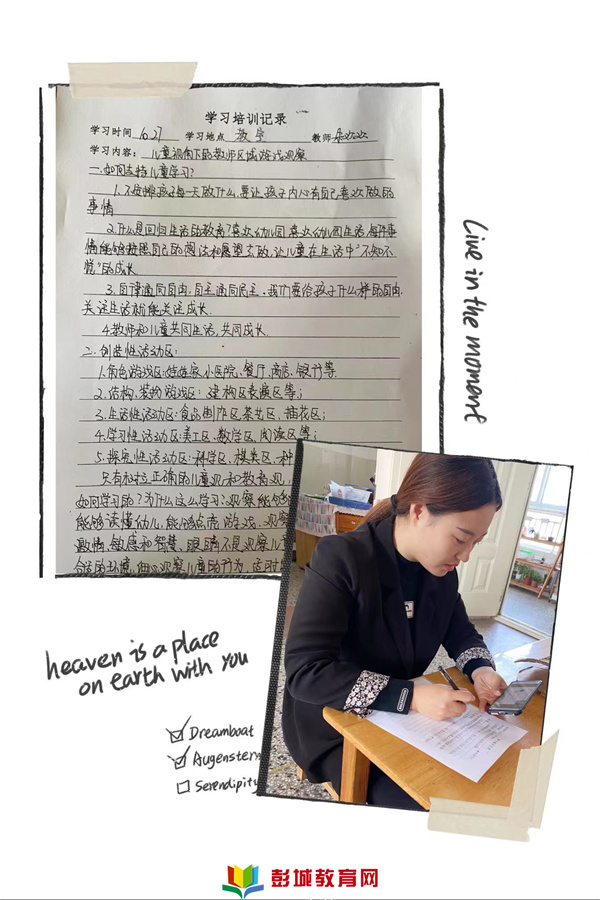 学习培训记录
学习时间 6.27 学习地点 教室 教师
学习内容: 儿童视角下的教师区域游戏观察
一.如何支持儿童学习?
1.不安排孩子每一天做什么,要让孩子内心有自己喜欢做的
事情
2.什么是回归生活的教育?喜欢幼儿园,喜欢幼儿园生活,每件事
情能够按照自己的想法和愿望去做,让儿童在生活中“不知不
觉”的成长
3.自律通向自由,自主通向民主,我们要给孩子什么样的自由,
关注生活就能关注成长.
4.教师和儿童共同生活,共同成长.
二.创造性活动区:
1.角色游戏区:娃娃家、小医院、餐厅、商店、银行等.
2.结构、装扮游戏区:建构区表演区等;
3.生活性活动区:食品制作区、茶艺区、插花区;
4.学习性活动区:美工区、数学区、阅读区等;
5.探究性活动区:科学区、棋类区、种
只有树立正确的儿童观和教育观,
如何学习的?为什么这么学习?观察能够
能够读懂幼儿,能够点亮游戏.观察
激情、敏感和智慧.眼睛不是观察儿
合适的环境,细心观察儿童的行为,适时
Live in the moment
heaven is a place
on earth with you
Dreamboat
Augenstern
Serendipity
彭城教育网